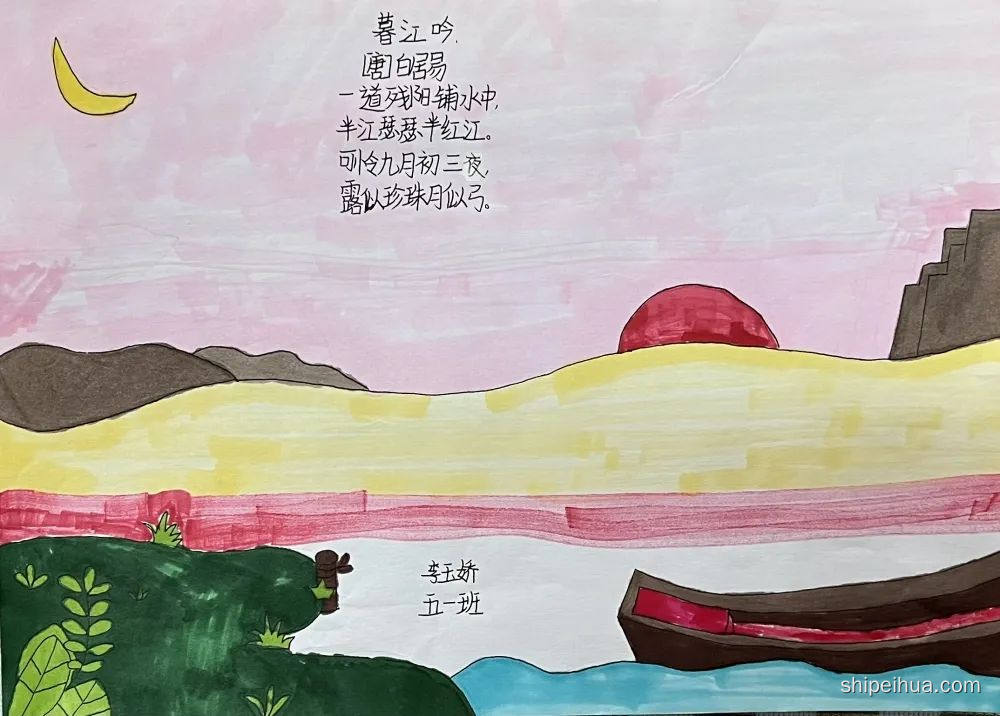 暮江吟.
[唐]白居易
一道残阳铺水中,
半江瑟瑟半红江。
可怜九月初三夜,
露似珍珠月似弓。
李玉娇
五一班
shipeihua.com